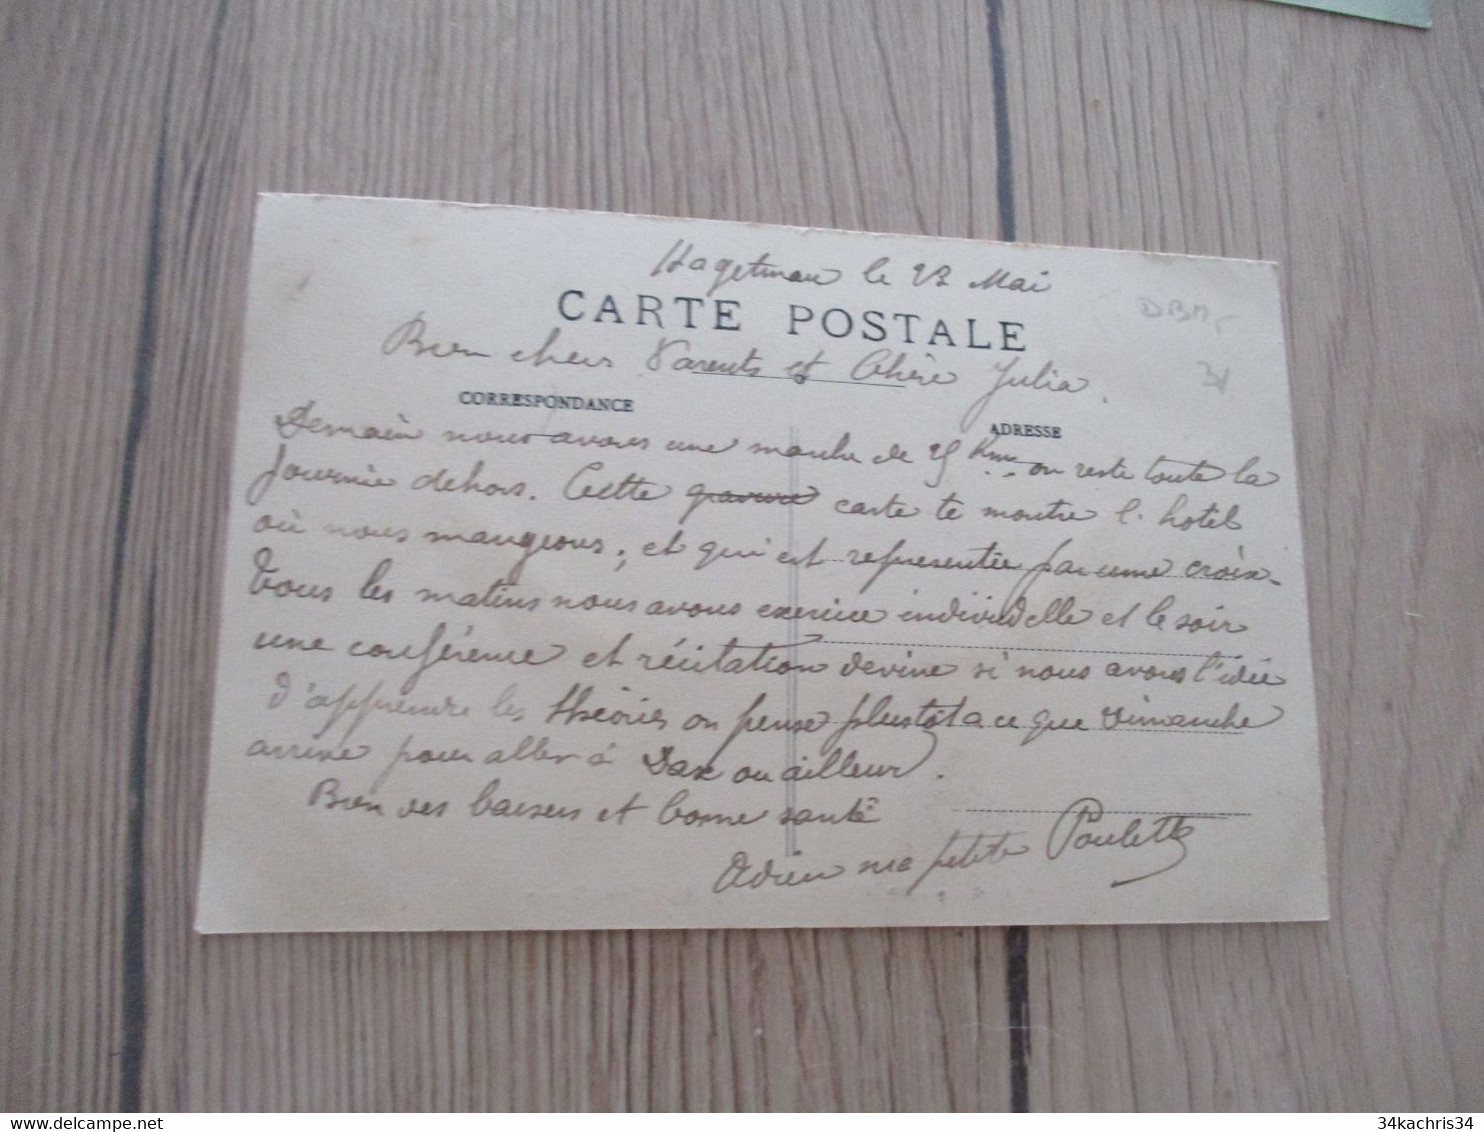 Hagetmau le 23 Mai
CARTE POSTALE
DBM
31
Bien chers Parents et Chère Julia.
CORRESPONDANCE
ADRESSE
Demain nous avons une marche de 25 Kms on reste toute la
journée dehors. Cette gravure carte te montre l'hotel
où nous mangeons, et qui est representée par une croix.
Tous les matins nous avons exercice individuelle et le soir
une conférence et récitation devine si nous avons l'idée
d'apprendre les théories on pense plustôt a ce que dimanche
arrive pour aller à Dax ou ailleur.
Bien des baisers et bonne santé
Adieu ma petite Paulette
34kachris34